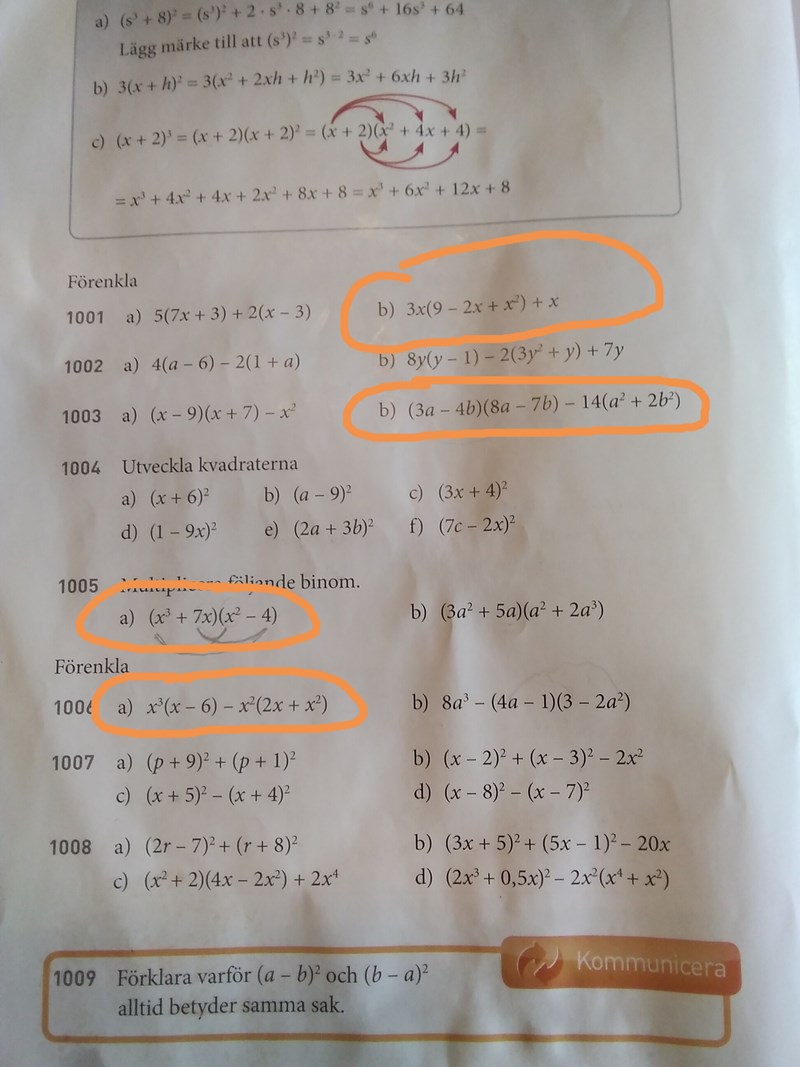 a) (s³ + 8)² = (s³)² + 2 · s³ · 8 + 8² = s⁶ + 16s³ + 64
Lägg märke till att (s³)² = s³ ˙ ² = s⁶
b) 3(x + h)² = 3(x² + 2xh + h²) = 3x² + 6xh + 3h²
c) (x + 2)³ = (x + 2)(x + 2)² = (x + 2)(x² + 4x + 4) =
= x³ + 4x² + 4x + 2x² + 8x + 8 = x³ + 6x² + 12x + 8
Förenkla
1001 a) 5(7x + 3) + 2(x − 3) b) 3x(9 − 2x + x²) + x
1002 a) 4(a − 6) − 2(1 + a) b) 8y(y − 1) − 2(3y² + y) + 7y
1003 a) (x − 9)(x + 7) − x² b) (3a − 4b)(8a − 7b) − 14(a² + 2b²)
1004 Utveckla kvadraterna
a) (x + 6)² b) (a − 9)² c) (3x + 4)²
d) (1 − 9x)² e) (2a + 3b)² f) (7c − 2x)²
1005 Multiplicera följande binom.
a) (x³ + 7x)(x² − 4) b) (3a² + 5a)(a² + 2a³)
Förenkla
1006 a) x³(x − 6) − x²(2x + x²) b) 8a³ − (4a − 1)(3 − 2a²)
1007 a) (p + 9)² + (p + 1)² b) (x − 2)² + (x − 3)² − 2x²
c) (x + 5)² − (x + 4)² d) (x − 8)² − (x − 7)²
1008 a) (2r − 7)² + (r + 8)² b) (3x + 5)² + (5x − 1)² − 20x
c) (x² + 2)(4x − 2x²) + 2x⁴ d) (2x³ + 0,5x)² − 2x²(x⁴ + x²)
Kommunicera
1009 Förklara varför (a − b)² och (b − a)²
alltid betyder samma sak.